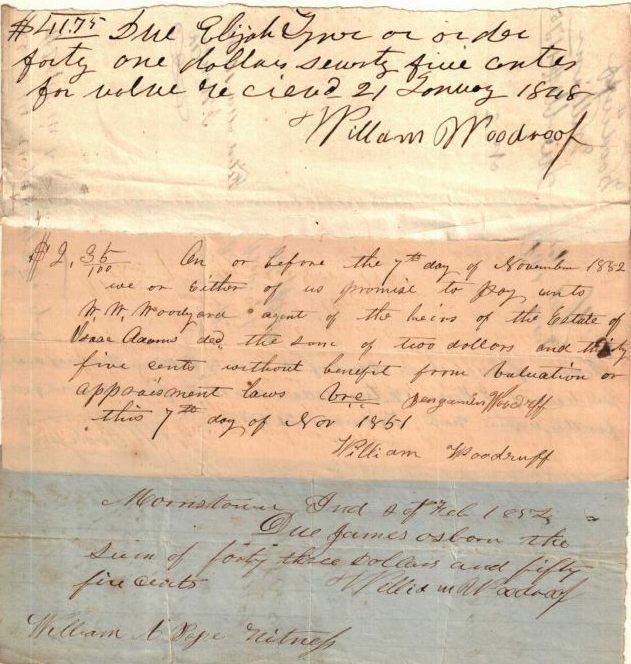 $41.75 Due Elijah Tyner or order
forty one dollars seventy five centes
for value reciend 21 Janury 1848
Willam Woodroof
$2. 35/100 On or before the 7th day of November 1852
we or Either of us promise to pay unto
W. W. Woodyard agent of the heirs of the Estate of
Isaac Adams decd the sum of two dollars and thirty
five cents without benefit from valuation or
appraisment laws Benjamin Woodruff
this 7th day of Nov 1851
William Woodruff
Morristown Ind of Feb 1852
Due James osborn the
sum of forty three Dollars and fifty
five cents William Woodroof
William N Pope Witness